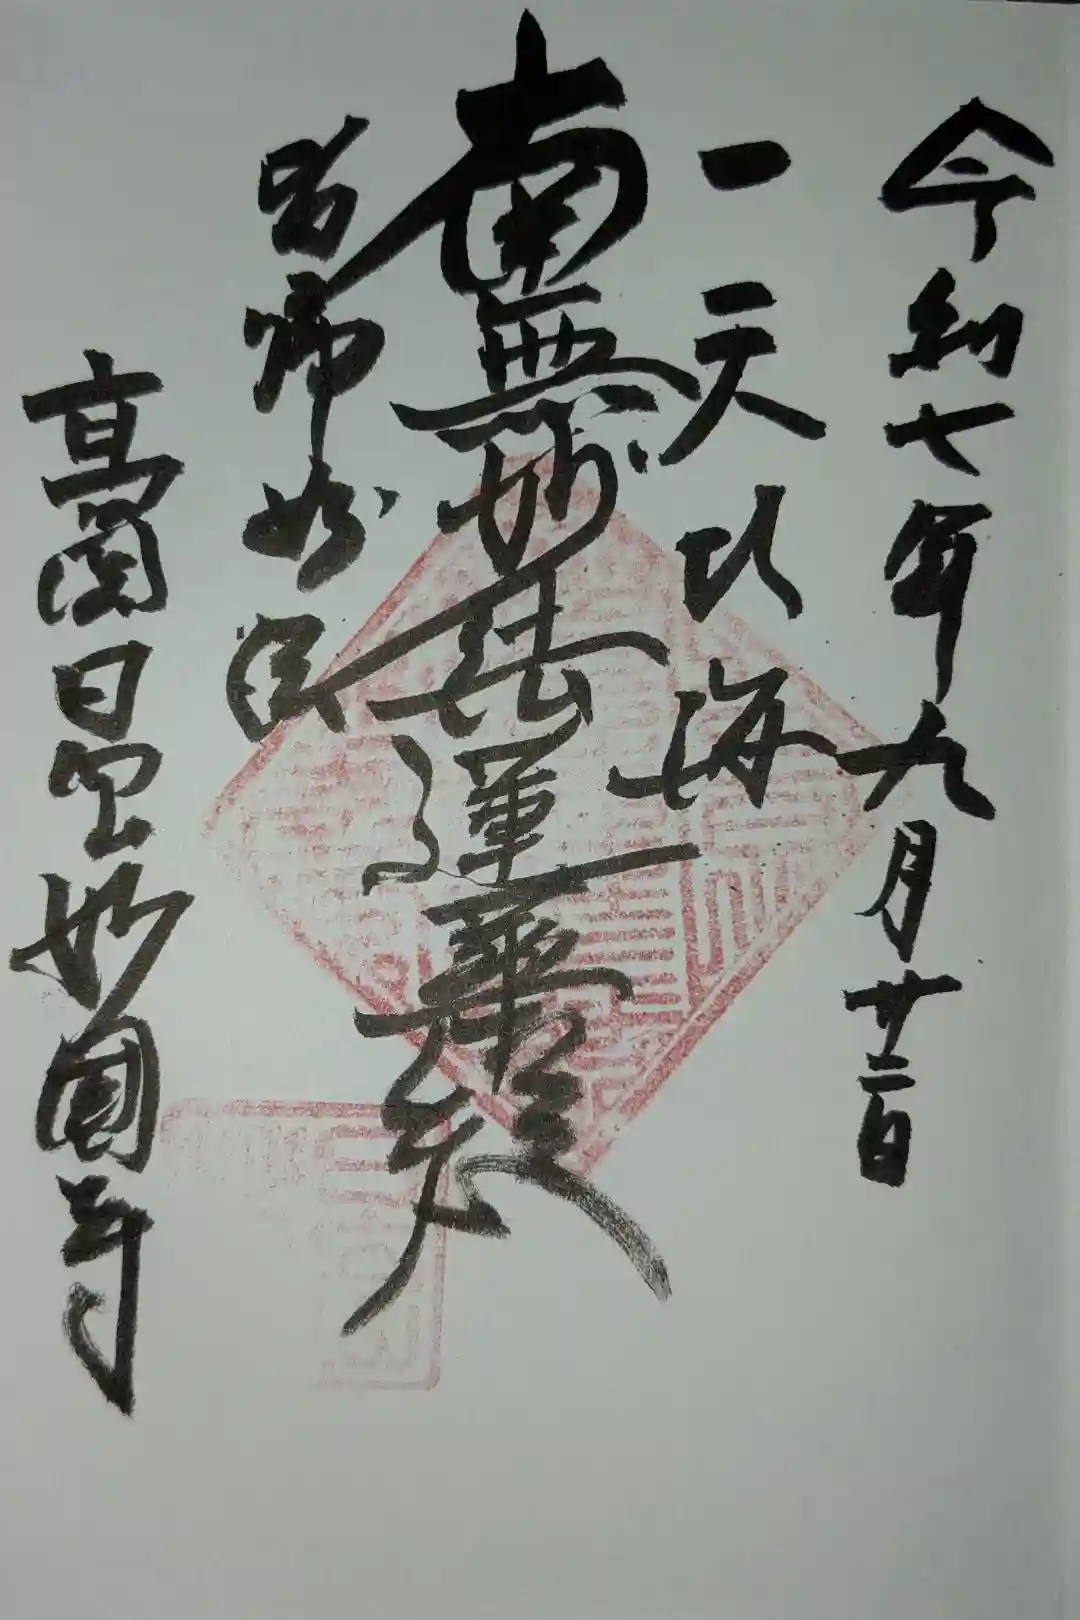 令和七年九月廿二日
一天四海
南無妙法蓮華経
皆帰妙法
高岡日出山妙國寺